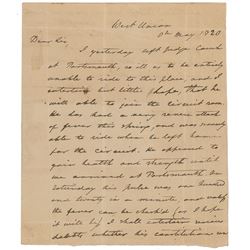 West Union
8th May 1820
Dear Sir
I yesterday left Judge Tand
at Portsmouth, so ill as to be entirely
unable to ride to this place, and I
entertain but little hope, that he
will be able to join the circuit soon.
He has had a very severe attack
of fever this spring, and was scarcely
able to ride when he left home
for the circuit. He appeared to
gain health and strength until
we arrived at Portsmouth. On
Saturday his pulse was one hundred
and twenty in a minute, and unless
the fever can be checked (as I hope
it will be) I shall entertain serious
doubts, whether his constitution